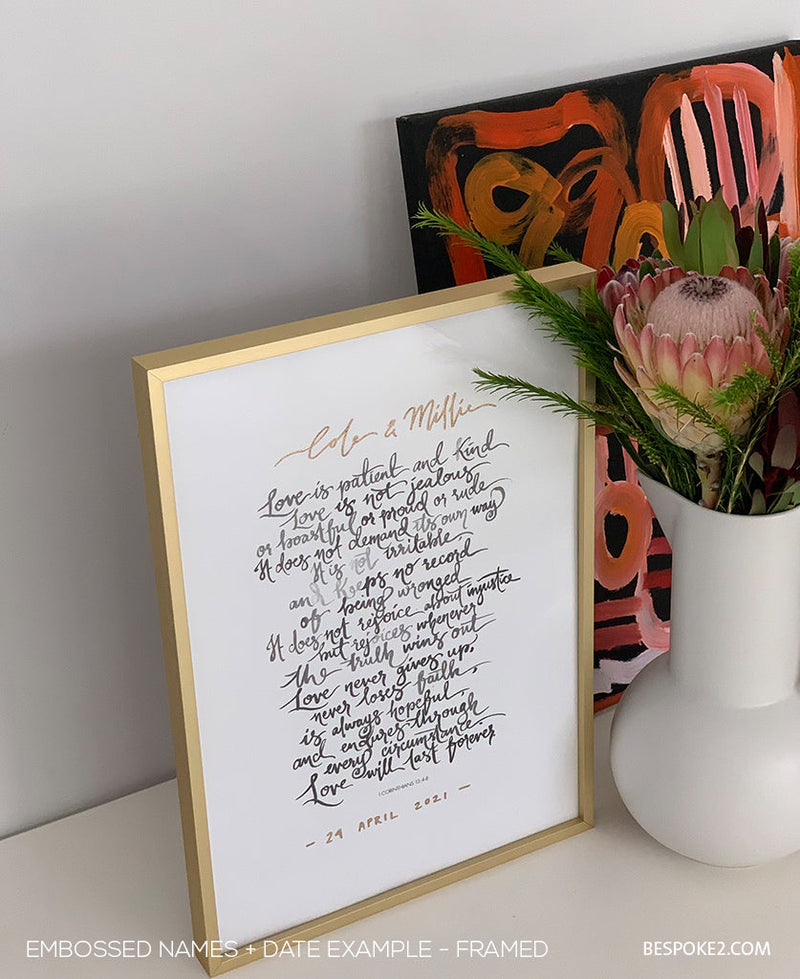 Cole & Millie
Love is patient and kind
Love is not jealous
or boastful or proud or rude
It does not demand its own way
It is not irritable
and keeps no record
of being wronged
It does not rejoice about injustice
but rejoices whenever
the truth wins out
Love never gives up,
never loses faith,
is always hopeful,
and endures through
every circumstance
Love will last forever
1 CORINTHIANS 13:4-8
- 24 APRIL 2021 -
EMBOSSED NAMES + DATE EXAMPLE - FRAMED
BESPOKE2.COM